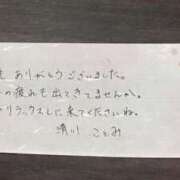 も ありがとうございました。
の疲れも出てきてませんか。
リラックスしに来てくださいね。
清川 ことみ